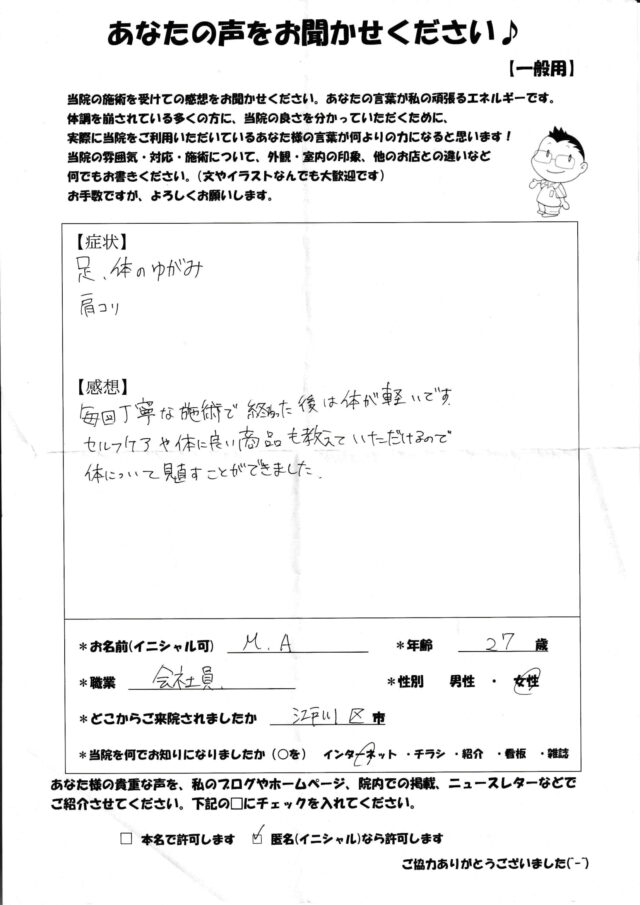 あなたの声をお聞かせください♪
【一般用】
当院の施術を受けての感想をお聞かせください。あなたの言葉が私の頑張るエネルギーです。
体調を崩されている多くの方に、当院の良さを分かっていただくために、
実際に当院をご利用いただいているあなた様の言葉が何よりの力になると思います！
当院の雰囲気・対応・施術について、外観・室内の印象、他のお店との違いなど
何でもお書きください。(文やイラストなんでも大歓迎です)
お手数ですが、よろしくお願いします。
【症状】
足、体のゆがみ
肩コリ
【感想】
毎回丁寧な施術で 終わった後は体が軽いです。
セルフケアや体に良い商品も教えていただけるので
体について見直すことができました。
＊お名前(イニシャル可) M.A ＊年齢 27 歳
＊職業 会社員 ＊性別 男性 ・ 女性
＊どこからご来院されましたか 江戸川区 市
＊当院を何でお知りになりましたか (○を) インターネット ・チラシ ・紹介 ・看板 ・雑誌
あなた様の貴重な声を、私のブログやホームページ、院内での掲載、ニュースレターなどで
ご紹介させてください。下記の□にチェックを入れてください。
□ 本名で許可します ☑ 匿名(イニシャル)なら許可します
ご協力ありがとうございました(¨-¨)